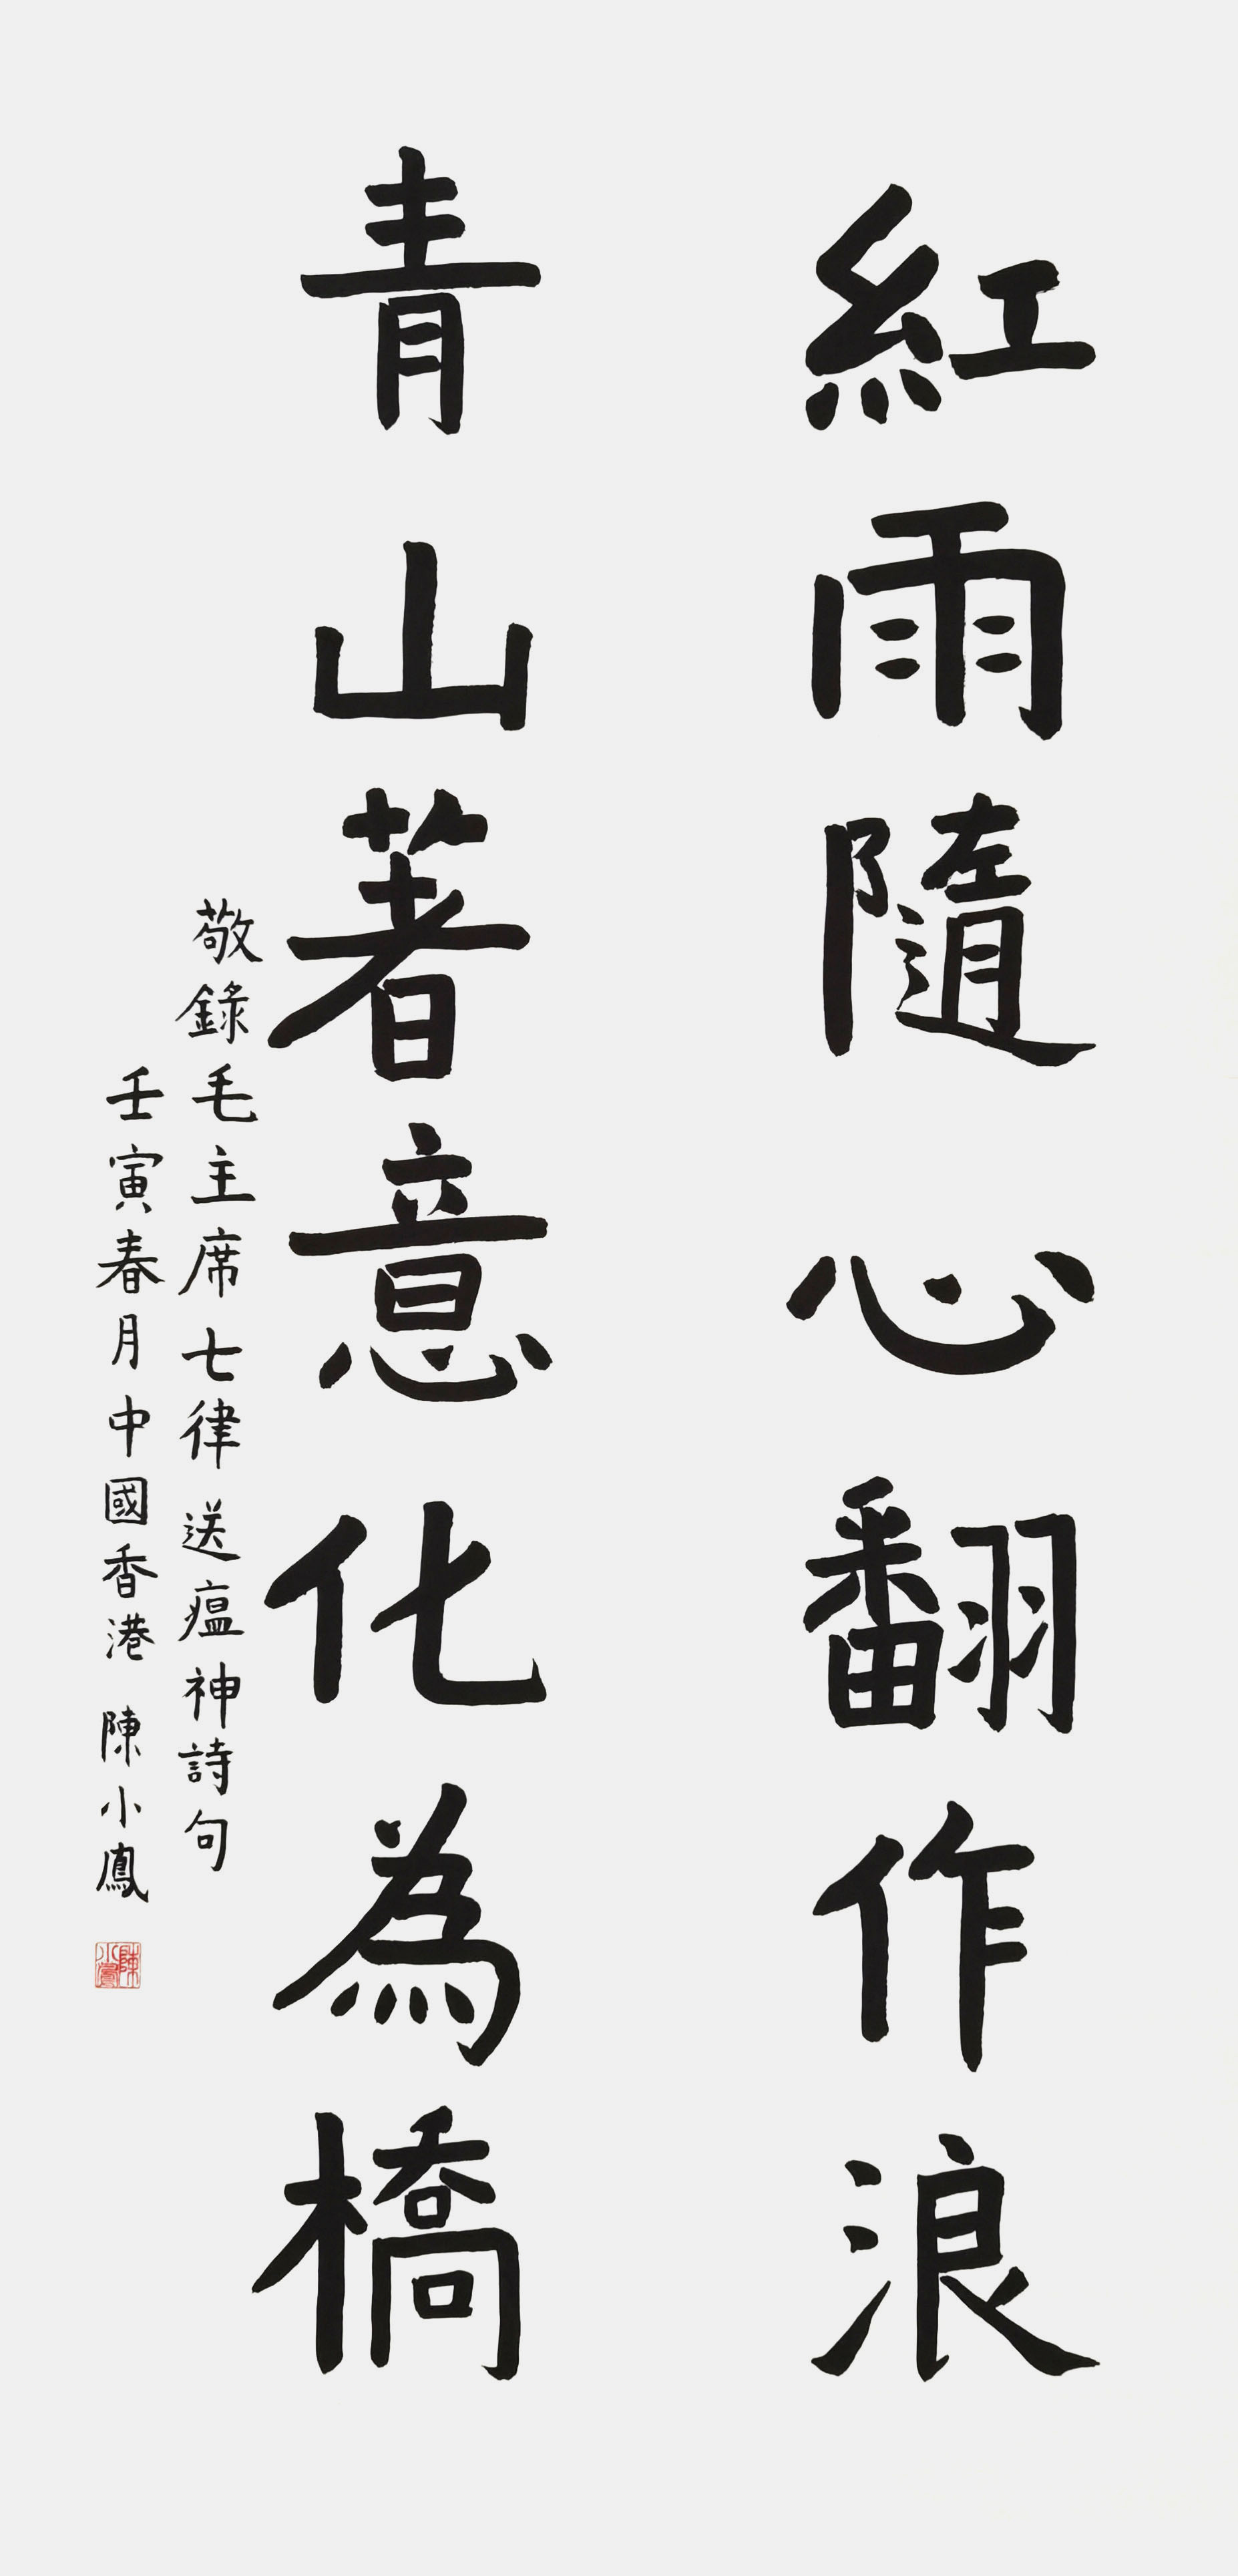 紅雨隨心翻作浪
青山著意化為橋
敬錄毛主席七律送瘟神詩句
壬寅春月中國香港陳小鳳
陳小鳳